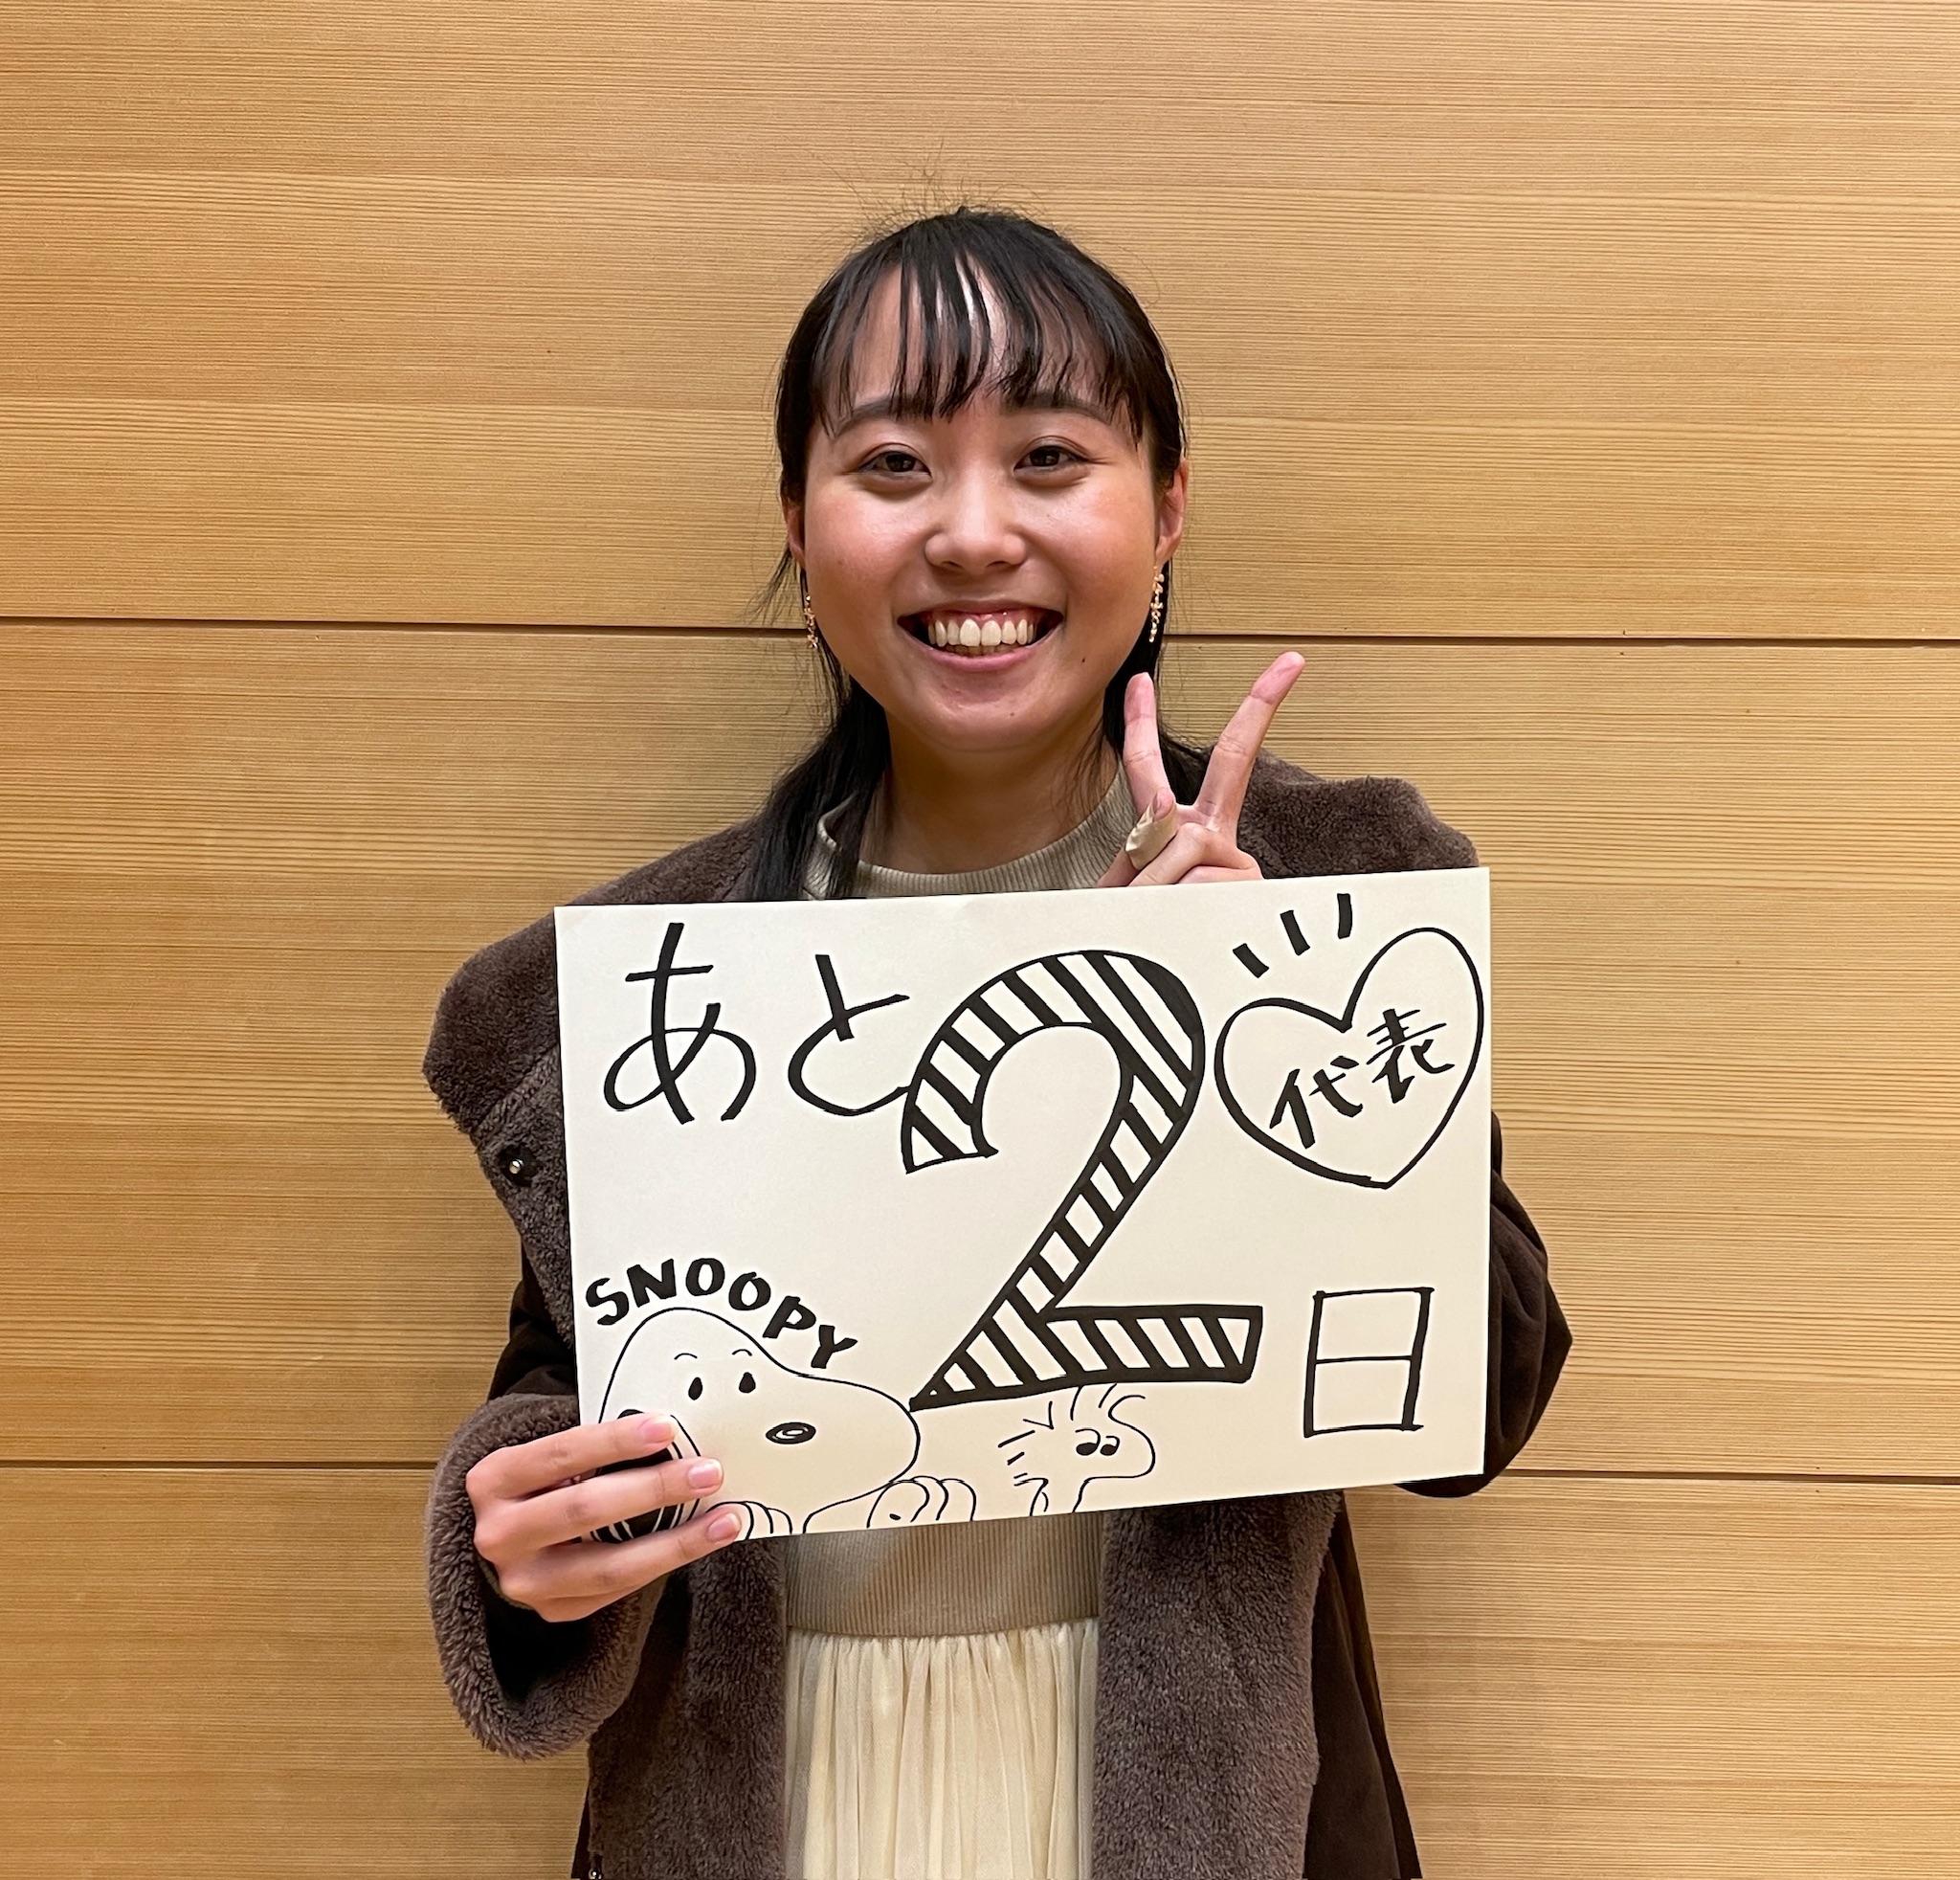 あと2日
代表
SNOOPY